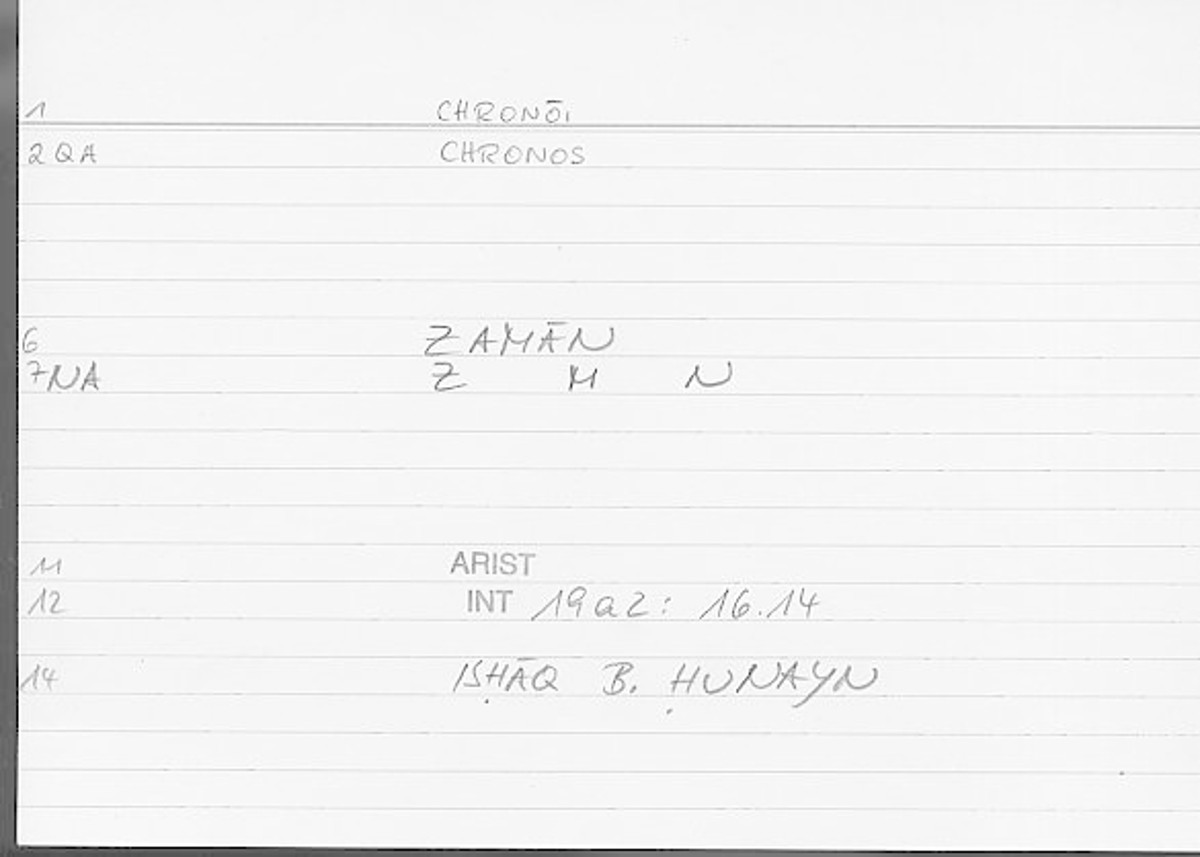 1 CHRONŌI
2 QA CHRONOS
6 ZAMĀN
7 NA Z M N
11 ARIST
12 INT 19a2: 16.14
14 ISḤĀQ B. ḤUNAYN